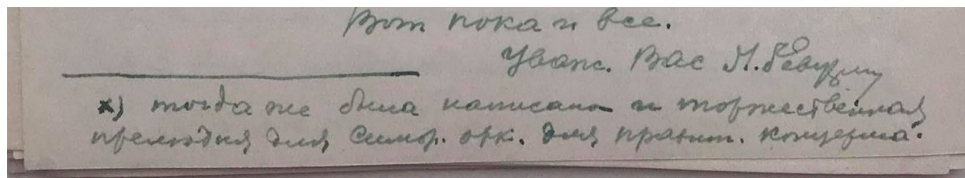 Вот пока и все.
Уваж. Вас Л. Ревуцкий
х) тогда же была написана и торжественная
прелюдия для симф. орк. для правит. концерта.